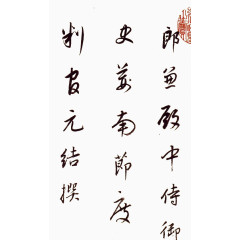 郎兼殿中侍御
史荆南節度
判官元結撰